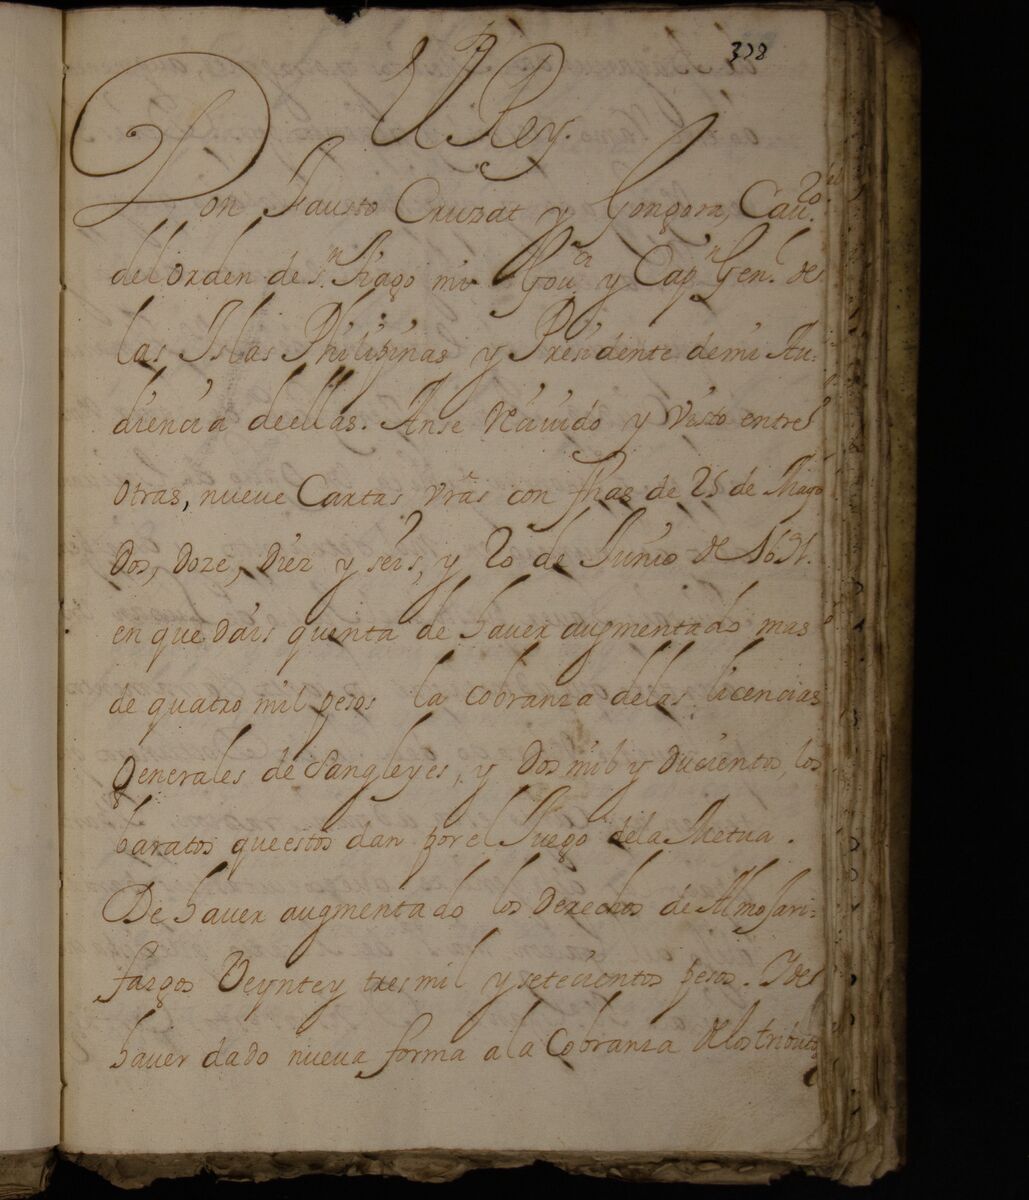 328
El Rey.
Don Fausto Cruzat y Gongora, Cauº.
del Orden de Sⁿ. Tiago mi Gouºʳ y Capⁿ Genˡ. de
las Islas Philipinas y Presidente de mi Au-
diencia de ellas. Anse reciuido y visto entre
otras, nueue Cartas vrãs con fhas de 25 de Mayo
Dos, Doze, Diez y seis, y 20 de Junio de 1691.
en que dais quenta de hauer augmentado mas
de quatro mil pesos la cobranza de las licencias
Generales de Sangleyes, y Dos mil y ducientos, los
baratos que estos dan por el Juego de la Metua.
De hauer augmentado los derechos de Almojari-
fazgos Veynte y tres mil y setecientos pesos. I de
hauer dado nueua forma a la Cobranza de los tributos